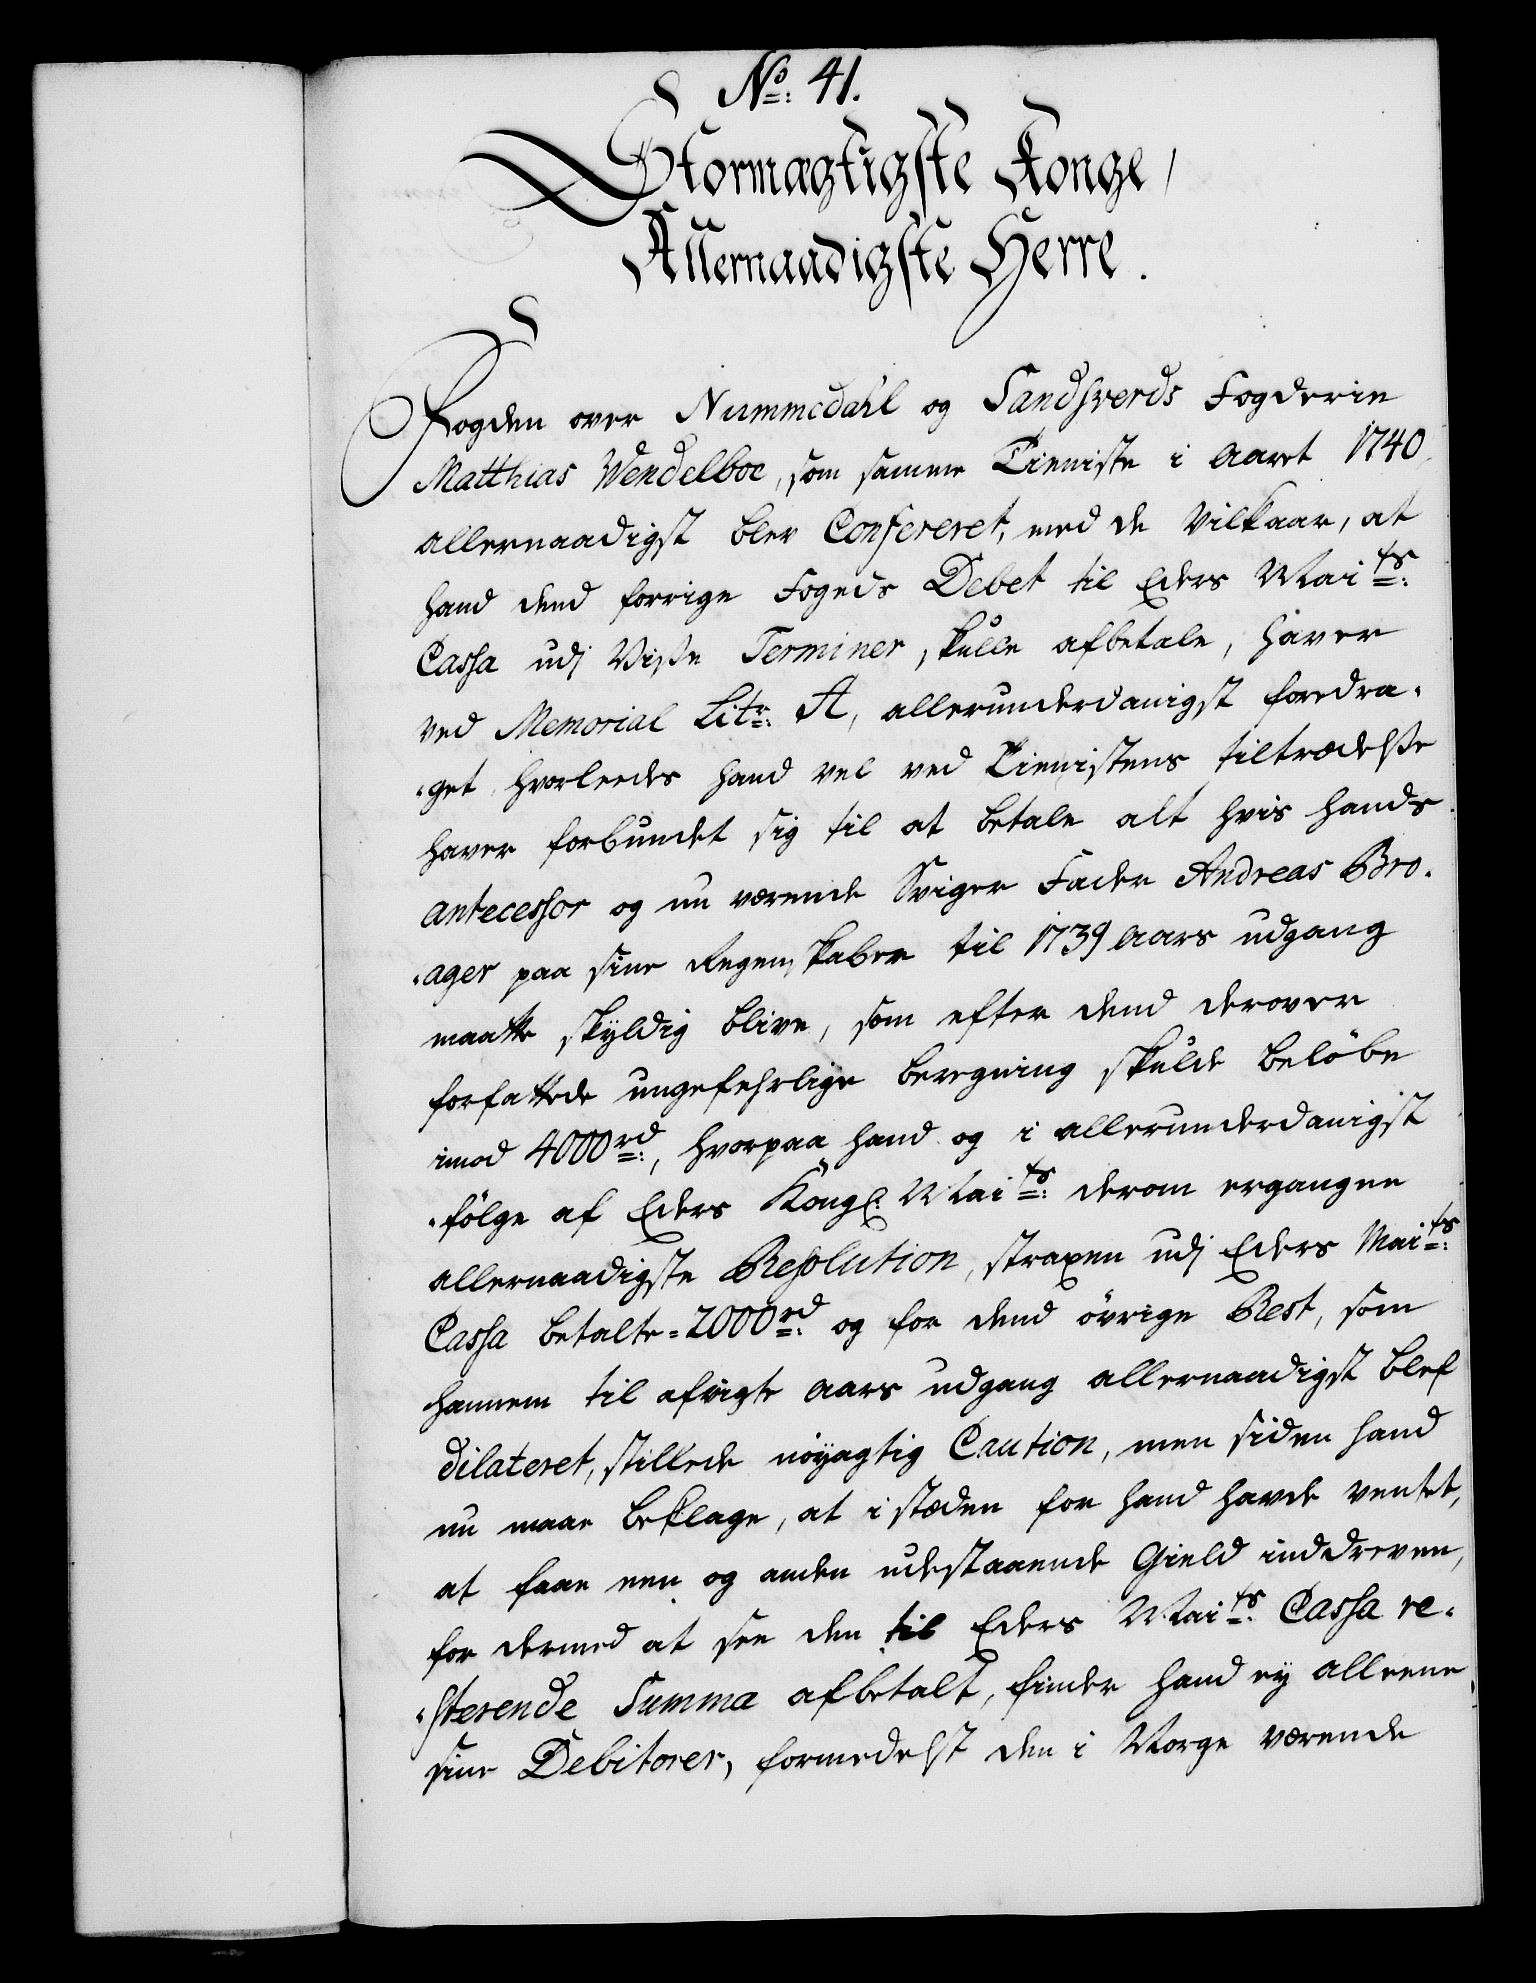 No: 41.
Stormægtigste Konge,
Allernaadigste Herre.
Fogden over Nummedahl og Sandsverds Fogderie
Matthias Wendelboe, som samme Tieniste i Aaret 1740
allernaadigst blev Confereret, med de Vilkaar, at
hand dend forrige Fogeds Debet til Eders Maits:
Cassa udj Visse Terminer skulle afbetale, haver
ved Memorial Litr: A, allerunderdanigst foredra-
-get, hvorleedes hand vel ved Tienistens tiltrædelse
haver forbundet sig til at betale alt hvis hands
Antecessor og nu værende Sviger Fader Andreas Bro-
-ager paa sine Regenskaber til 1739 Aars udgang
maatte skyldig blive, som efter dend derover
forfattede ungefehrlige beregning skulde beløbe
imod 4000rd:, hvorpaa hand og i allerunderdanigst
-følge af Eders Kongl: Maits: derom ergangne
allernaadigste Resolution, straxen udj Eders Maits:
Cassa betalte-2000rd: og for dend øvrige Rest, som
hannem til afvigte Aars udgang allernaadigst blef
dilateret, stillede nøyagtig Caution, men siden hand
nu maae beklage, at i stæden for hand havde ventet,
at faae een og anden udestaaende Gield inddreven,
for dermed at see den til Eders Maits: Cassa re-
-sterende Summa afbetalt, finder hand ey alleene
sine Debitorer, formedelst den i Norge værende